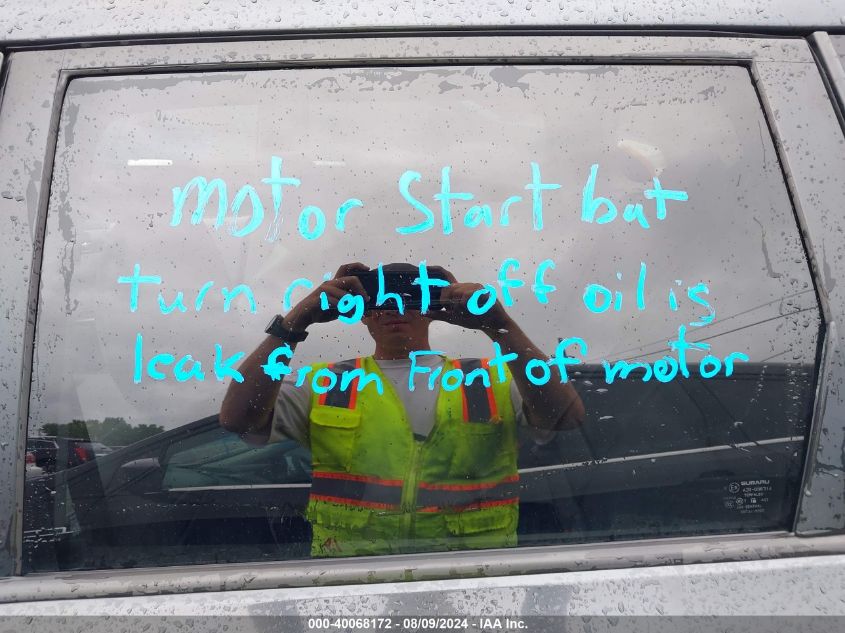 motor Start but
turn right off oil is
leak from Front of motor
SUBARU
000-40068172 - 08/09/2024 - IAA Inc.